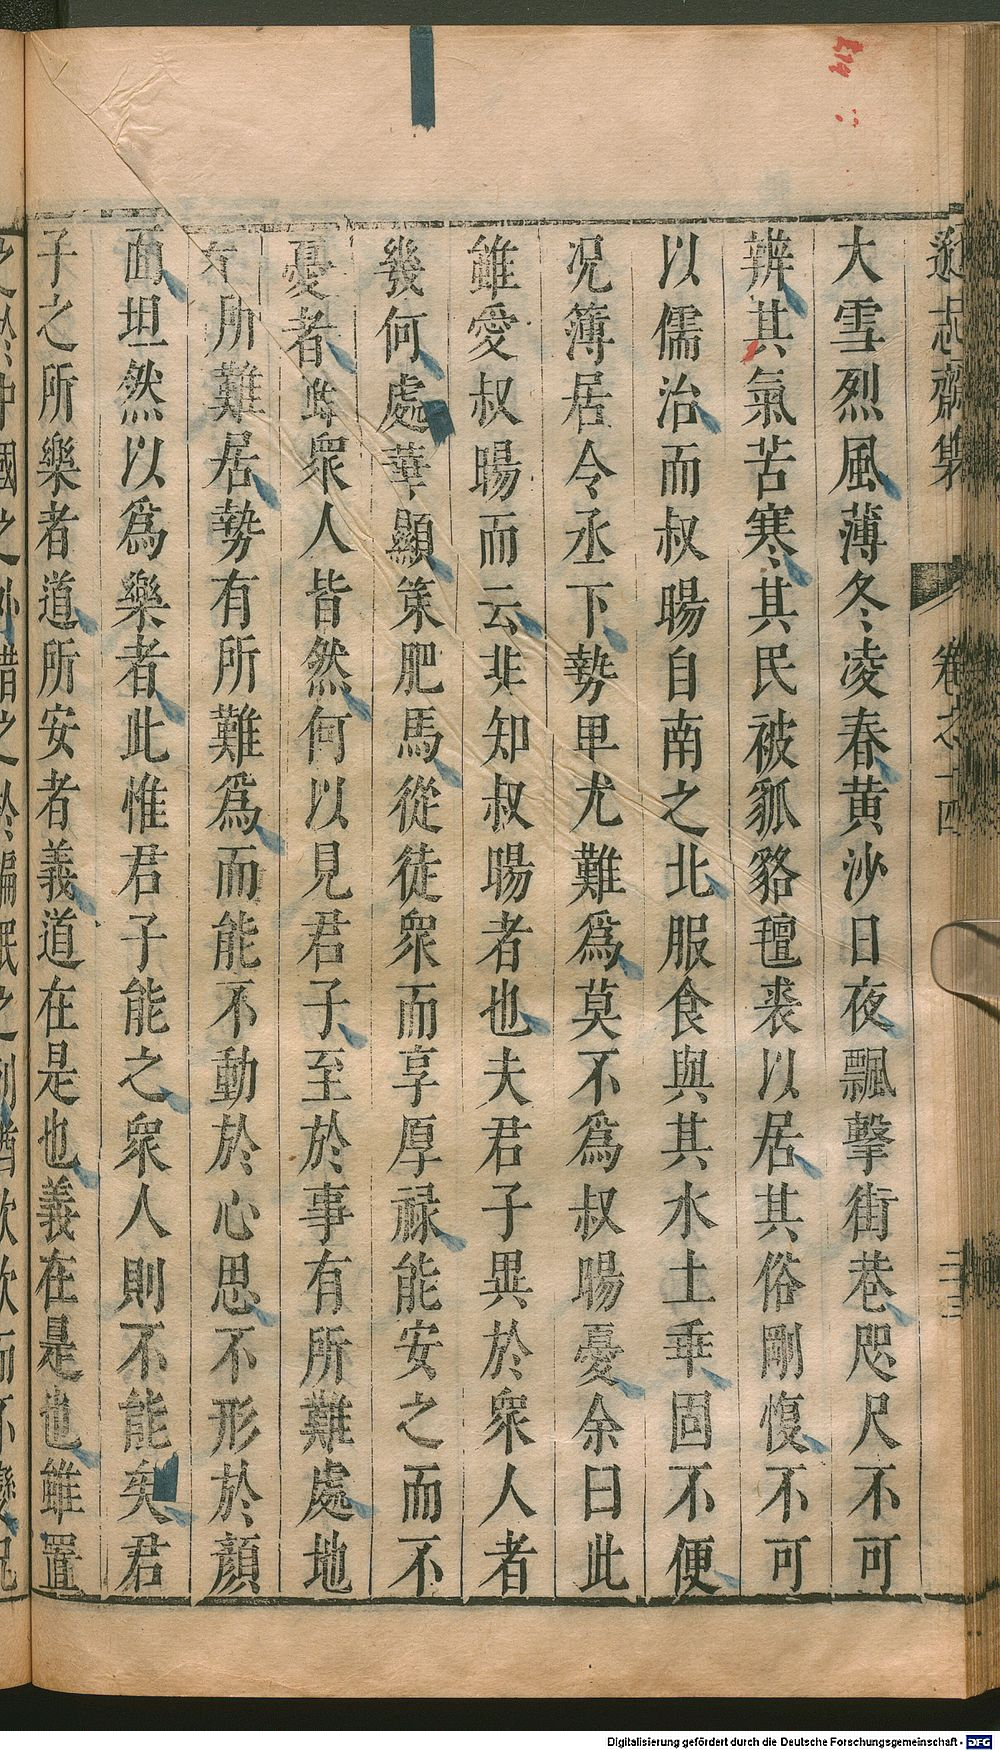 遜志齋集 卷之十四 二十三
大雪烈風薄冬凌春黄沙日夜飄擊街巷咫尺不可
辨其氣苦寒其民被狐貉氊裘以居其俗剛愎不可
以儒治而叔暘自南之北服食與其水土乖固不便
况簿居令丞下勢卑尤難爲莫不爲叔暘憂余曰此
雖愛叔暘而云非知叔暘者也夫君子異於衆人者
幾何處華顯策肥馬從徒衆而享厚禄能安之而不
憂者雖衆人皆然何以見君子至於事有所難處地
有所難居勢有所難爲而能不動於心思不形於顔
面坦然以爲樂者此惟君子能之衆人則不能矣君
子之所樂者道所安者義道在是也義在是也雖置
Digitalisierung gefördert durch die Deutsche Forschungsgemeinschaft - DFG